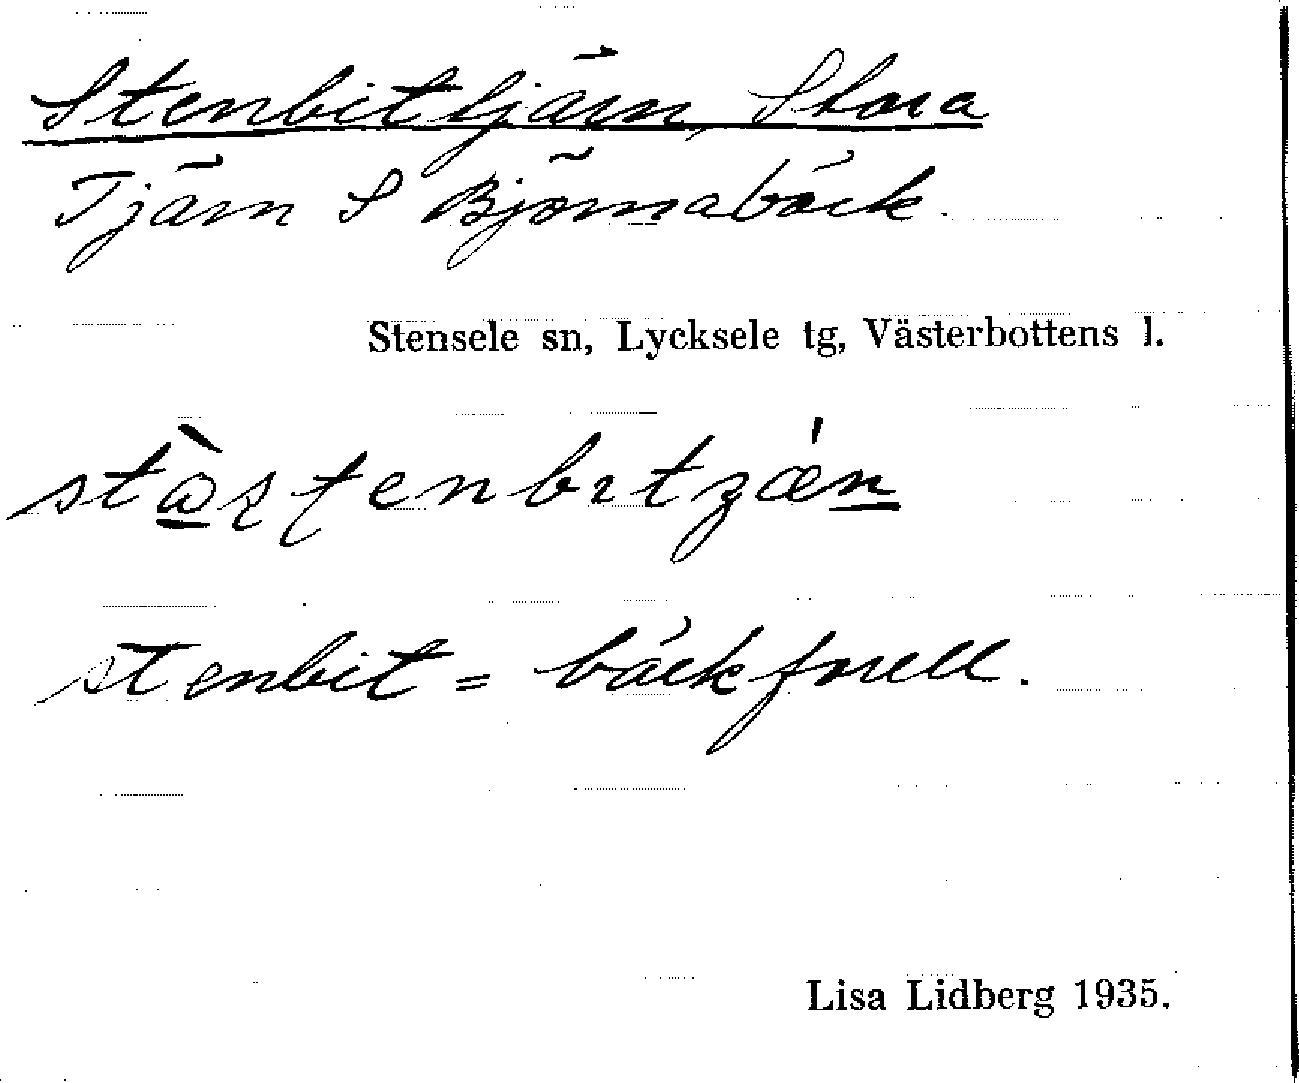 Stenbittjärn, Stora
Tjärn S Björnabäck.
Stensele sn, Lycksele tg, Västerbottens l.
stenbit = bäckforell.
Lisa Lidberg 1935.